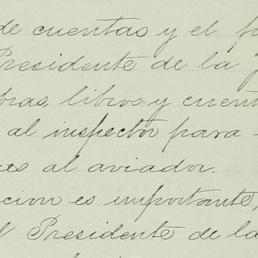 de cuentas y el
Presidente de la
libros y cuent
al inspector para
es al aviador.
cion es importante,
Presidente de la